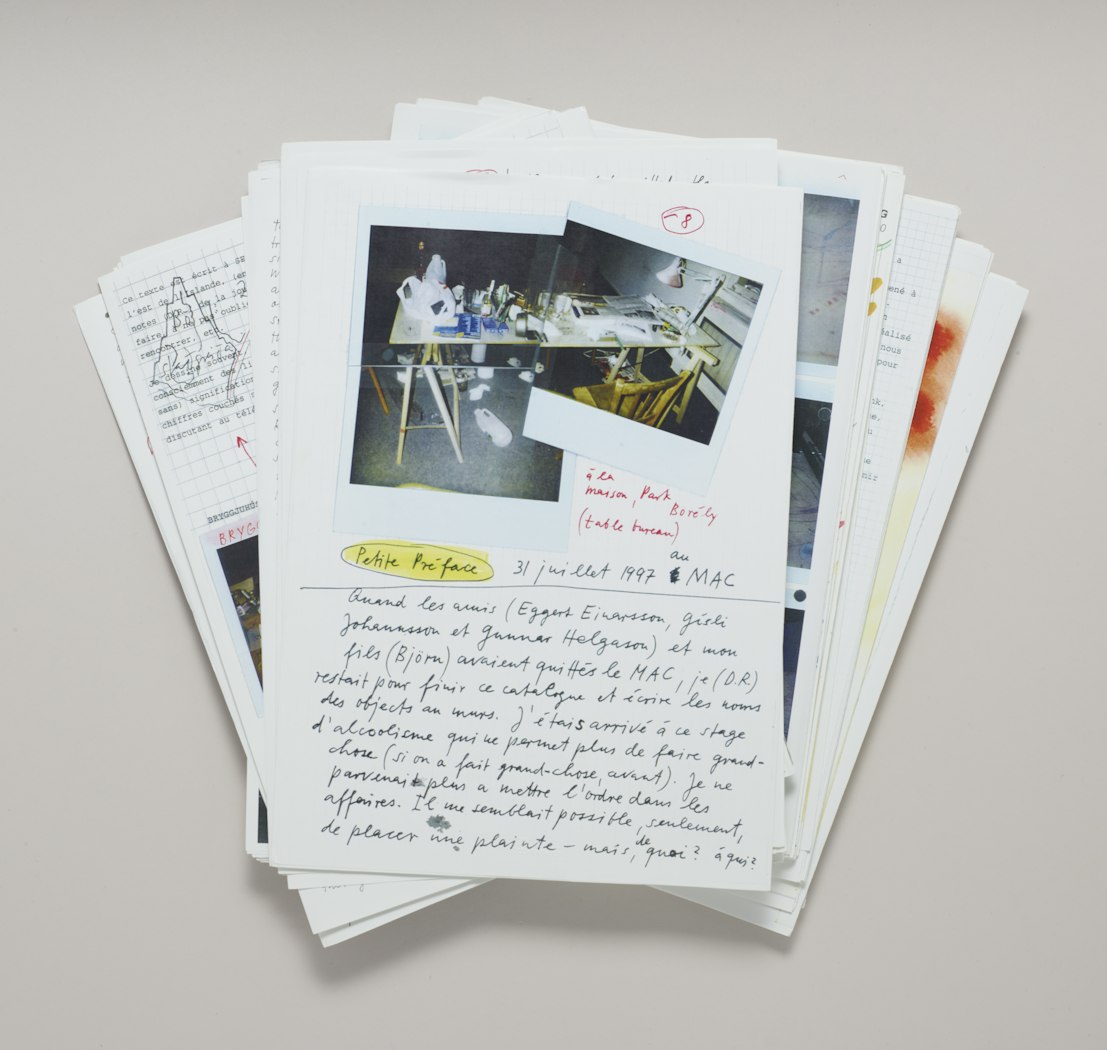 -8
à la
maison, Park
Borély
(table bureau)
Petite Préface 31 juillet 1997 au MAC
Quand les amis (Eggert Einarsson, Gisli
Johannsson et Gunnar Helgason) et mon
fils (Björn) avaient quittés le MAC, je (D.R.)
restait pour finir ce catalogue et écrire les noms
des objects au murs. J'étais arrivé à ce stage
d'alcoolisme qui ne permet plus de faire grand-
chose (si on a fait grand-chose, avant). Je ne
parvenait plus a mettre l'ordre dans les
affaires. Il me semblait possible, seulement,
de placer une plainte – mais, de quoi? à qui?
Ce texte est écrit à
l'est de l'Islande,
notes de la
faire,
rencontrer, et
Je dessine souvent
consciemment des
sans) signification
chiffres couchés
discutant au
BRYGGJUHÚS
BRYGG
a
ené à
n
éalisé
nous
pour
nk.
e.
u
te
nir